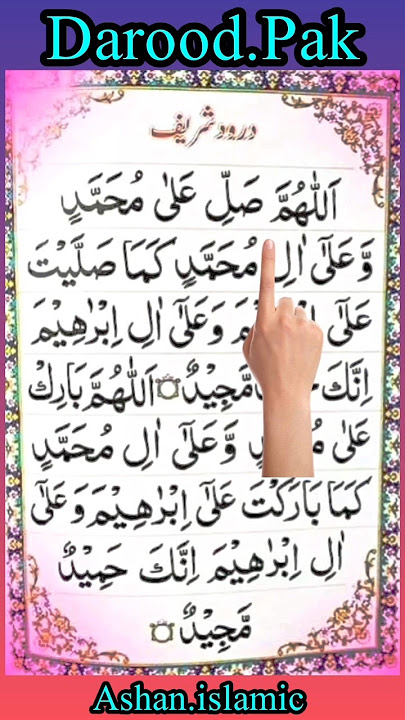 Darood.Pak
درود شریف
اَللّٰهُمَّ صَلِّ عَلٰی مُحَمَّدٍ
وَّعَلٰٓی اٰلِ مُحَمَّدٍ كَمَا صَلَّیْتَ
عَلٰٓی وَعَلٰٓی اٰلِ اِبْرٰهِیْمَ
اِنَّكَ مَّجِیْدٌ اَللّٰهُمَّ بَارِكْ
عَلٰی وَّعَلٰٓی اٰلِ مُحَمَّدٍ
كَمَا بَارَكْتَ عَلٰٓی اِبْرٰهِیْمَ وَعَلٰٓی
اٰلِ اِبْرٰهِیْمَ اِنَّكَ حَمِیْدٌ
مَّجِیْدٌ
Ashan.islamic